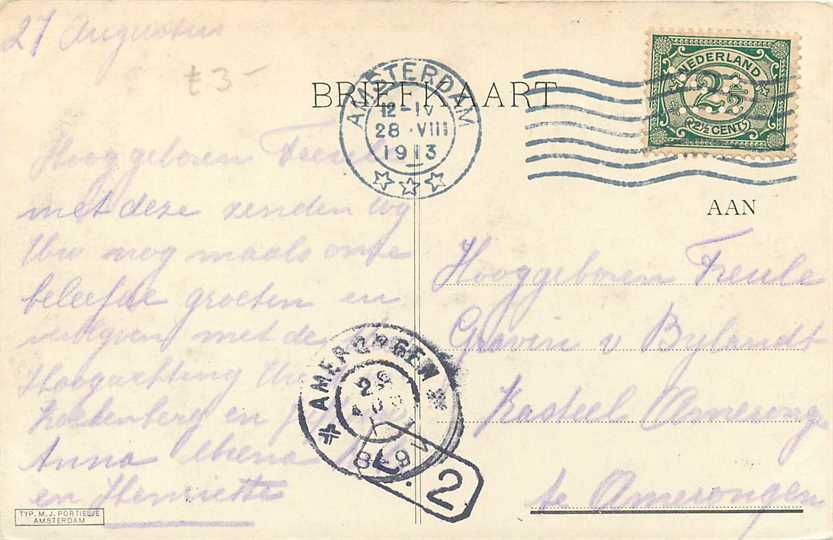 27 Augustus
f 3-
BRIEFKAART
AMSTERDAM
12-IV
28.VIII
1913
NEDERLAND
2½
(2½ CENT)
Hooggeboren Freule
met deze zenden wy
Uw nog maals onze
beleefde groeten en
met de
Hoogachting Uw
en
Anna
en Henriette
AAN
Hooggeboren Freule
Gravin v Bylandt
Kasteel Amerongen
te Amerongen
AMERONGEN
8-9V
L.2
TYP. M. J. PORTIELJE
AMSTERDAM